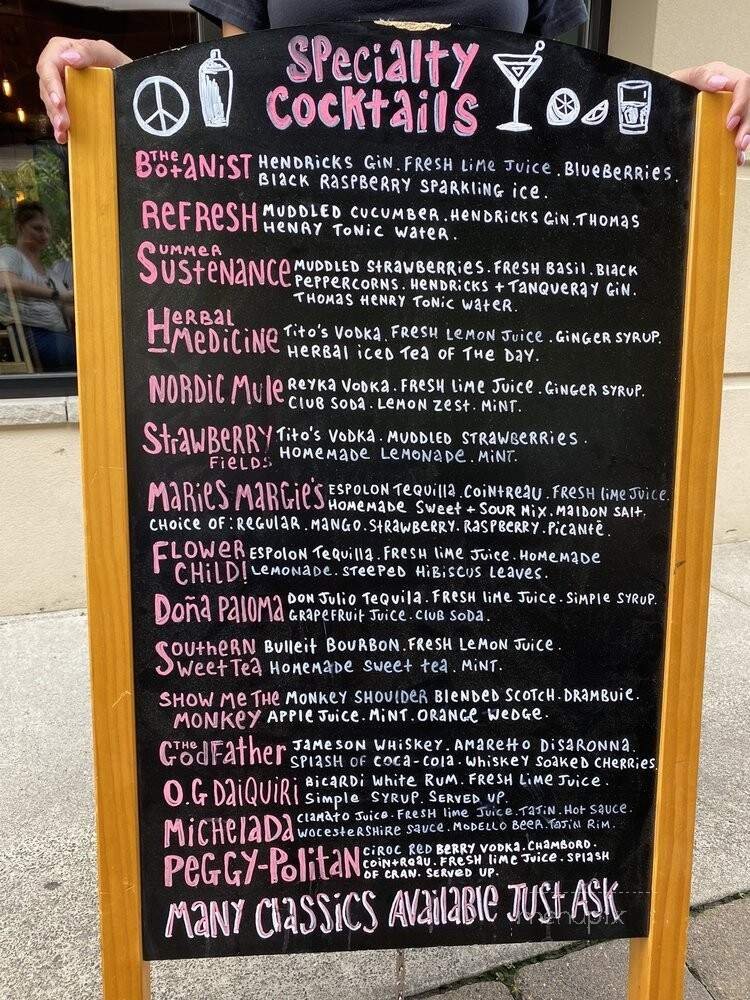 Specialty
Cocktails
THE BOtANiST HENDRICKS GiN. FRESH Lime Juice. BLUEBERRIES.
BLACK RASPBERRY SPARKLING iCE.
REFRESH MUDDLED CUCUMBER. HENDRICKS GiN. THOMAS
HENRY TONIC WATER.
SUMMER
SUSTENANCE MUDDLED STRAWBERRIES. FRESH BASIL. BLACK
PEPPERCORNS. HENDRICKS + TANQUERAY GiN.
THOMAS HENRY TONIC WATER.
HERBAL
MEDICINE TiTO'S VODKA. FRESH LEMON JUICE. GINGER SYRUP.
HERBAL iCED TEA OF THE DAY.
NORDIC MULE REYKA VODKA. FRESH Lime JUICE. GINGER SYRUP.
CLUB SODA. LEMON ZEST. MiNT.
STRAWBERRY TiTO'S VODKA. MUDDLED STRAWBERRIES.
FIELDS HOMEMADE LEMONADE. MiNT.
MARIES MARGIE'S ESPOLON TEQUILLA. COiNTREAU. FRESH Lime JUICE.
HOMEMADE SWEET + SOUR MiX. MALDON SALT.
CHOICE OF: REGULAR. MANGO. STRAWBERRY. RASPBERRY. PiCANTÉ.
FLOWER ESPOLON TEQUILLA. FRESH Lime JUICE. HOMEMADE
CHILD! LEMONADE. STEEPED HIBISCUS LEAVES.
DOÑA PALOMA DON JULIO TEQUILA. FRESH Lime JUICE. SIMPLE SYRUP.
GRAPEFRUIT JUICE. CLUB SODA.
SOUTHERN BULLEIT BOURBON. FRESH LEMON JUICE.
SWEET TEA HOMEMADE SWEET TEA. MiNT.
SHOW ME THE MONKEY SHOULDER BLENDED SCOTCH. DRAMBUIE.
MONKEY APPLE JUICE. MiNT. ORANGE WEDGE.
THE GODFATHER JAMESON WHISKEY. AMARETTO DISARONNA.
SPLASH OF COCA-COLA. WHISKEY SOAKED CHERRIES.
O.G DAIQUIRI BICARDI WHITE RUM. FRESH LIME JUICE.
SIMPLE SYRUP. SERVED UP.
MICHELADA CLAMATO JUICE. FRESH LIME JUICE. TAJIN. HOT SAUCE.
WOCESTERSHIRE SAUCE. MODELLO BEER. TAJIN RIM.
PEGGY-POLITAN CIROC RED BERRY VODKA. CHAMBORD.
COINTREAU. FRESH LIME JUICE. SPLASH
OF CRAN. SERVED UP.
MANY CLASSICS AVAILABLE JUST ASK
menupix